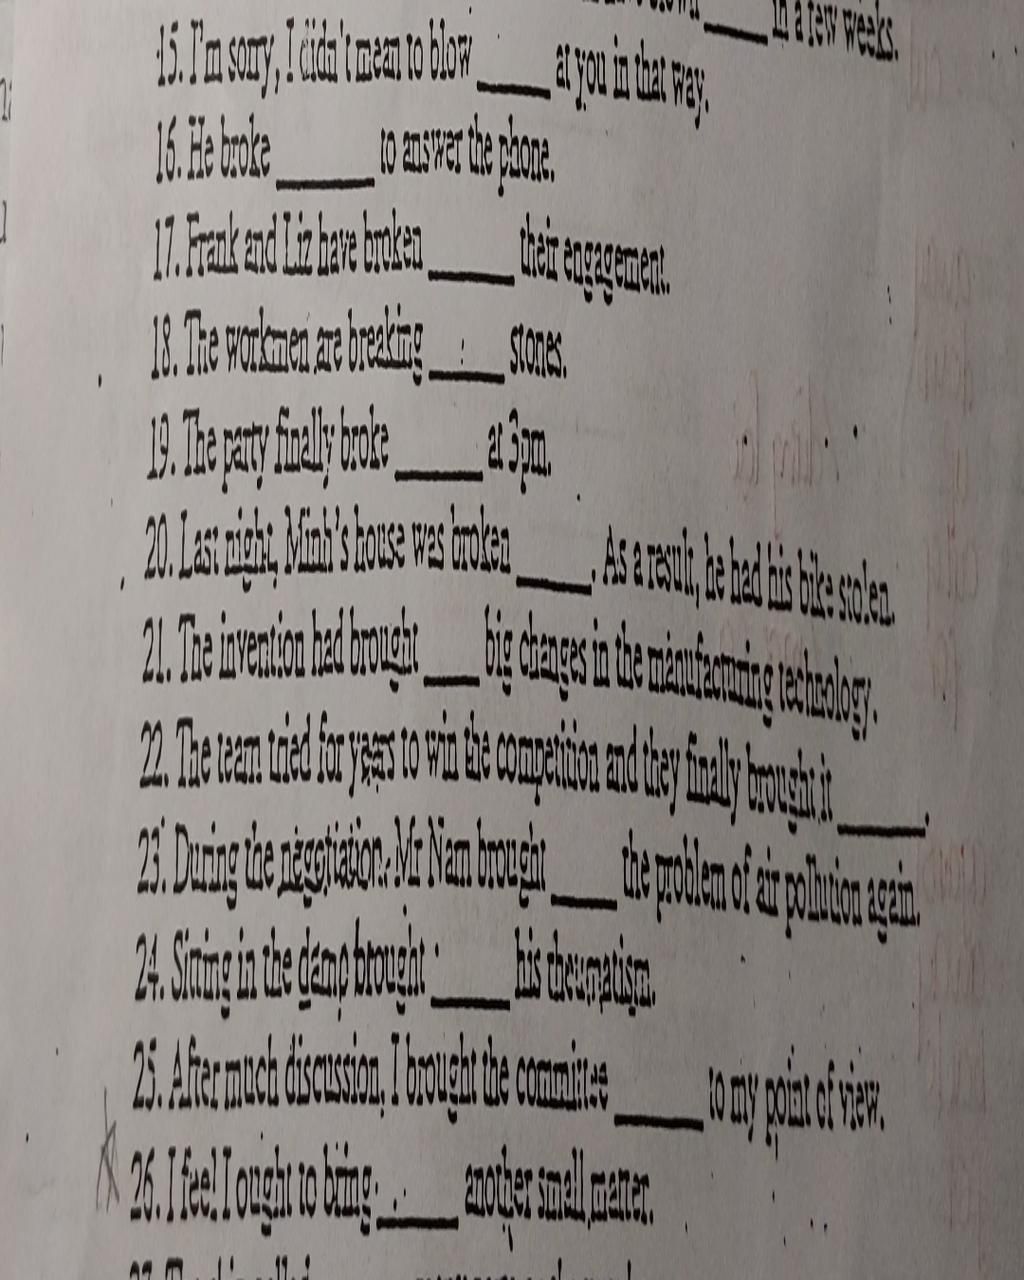 _____ in a few weeks.
15. I'm sorry, I didn't mean to blow _____ at you in that way.
16. He broke _____ to answer the phone.
17. Frank and Liz have broken _____ their engagement.
18. The workmen are breaking _____ stones.
19. The party finally broke _____ at 3pm.
20. Last night, Minh's house was broken _____. As a result, he had his bike stolen.
21. The invention had brought _____ big changes in the manufacturing technology.
22. The team tried for years to win the competition and they finally brought it _____.
23. During the negotiation, Mr Nam brought _____ the problem of air pollution again.
24. Sitting in the damp brought _____ his rheumatism.
25. After much discussion, I brought the committee _____ to my point of view.
26. I feel I ought to bring _____ another small matter.